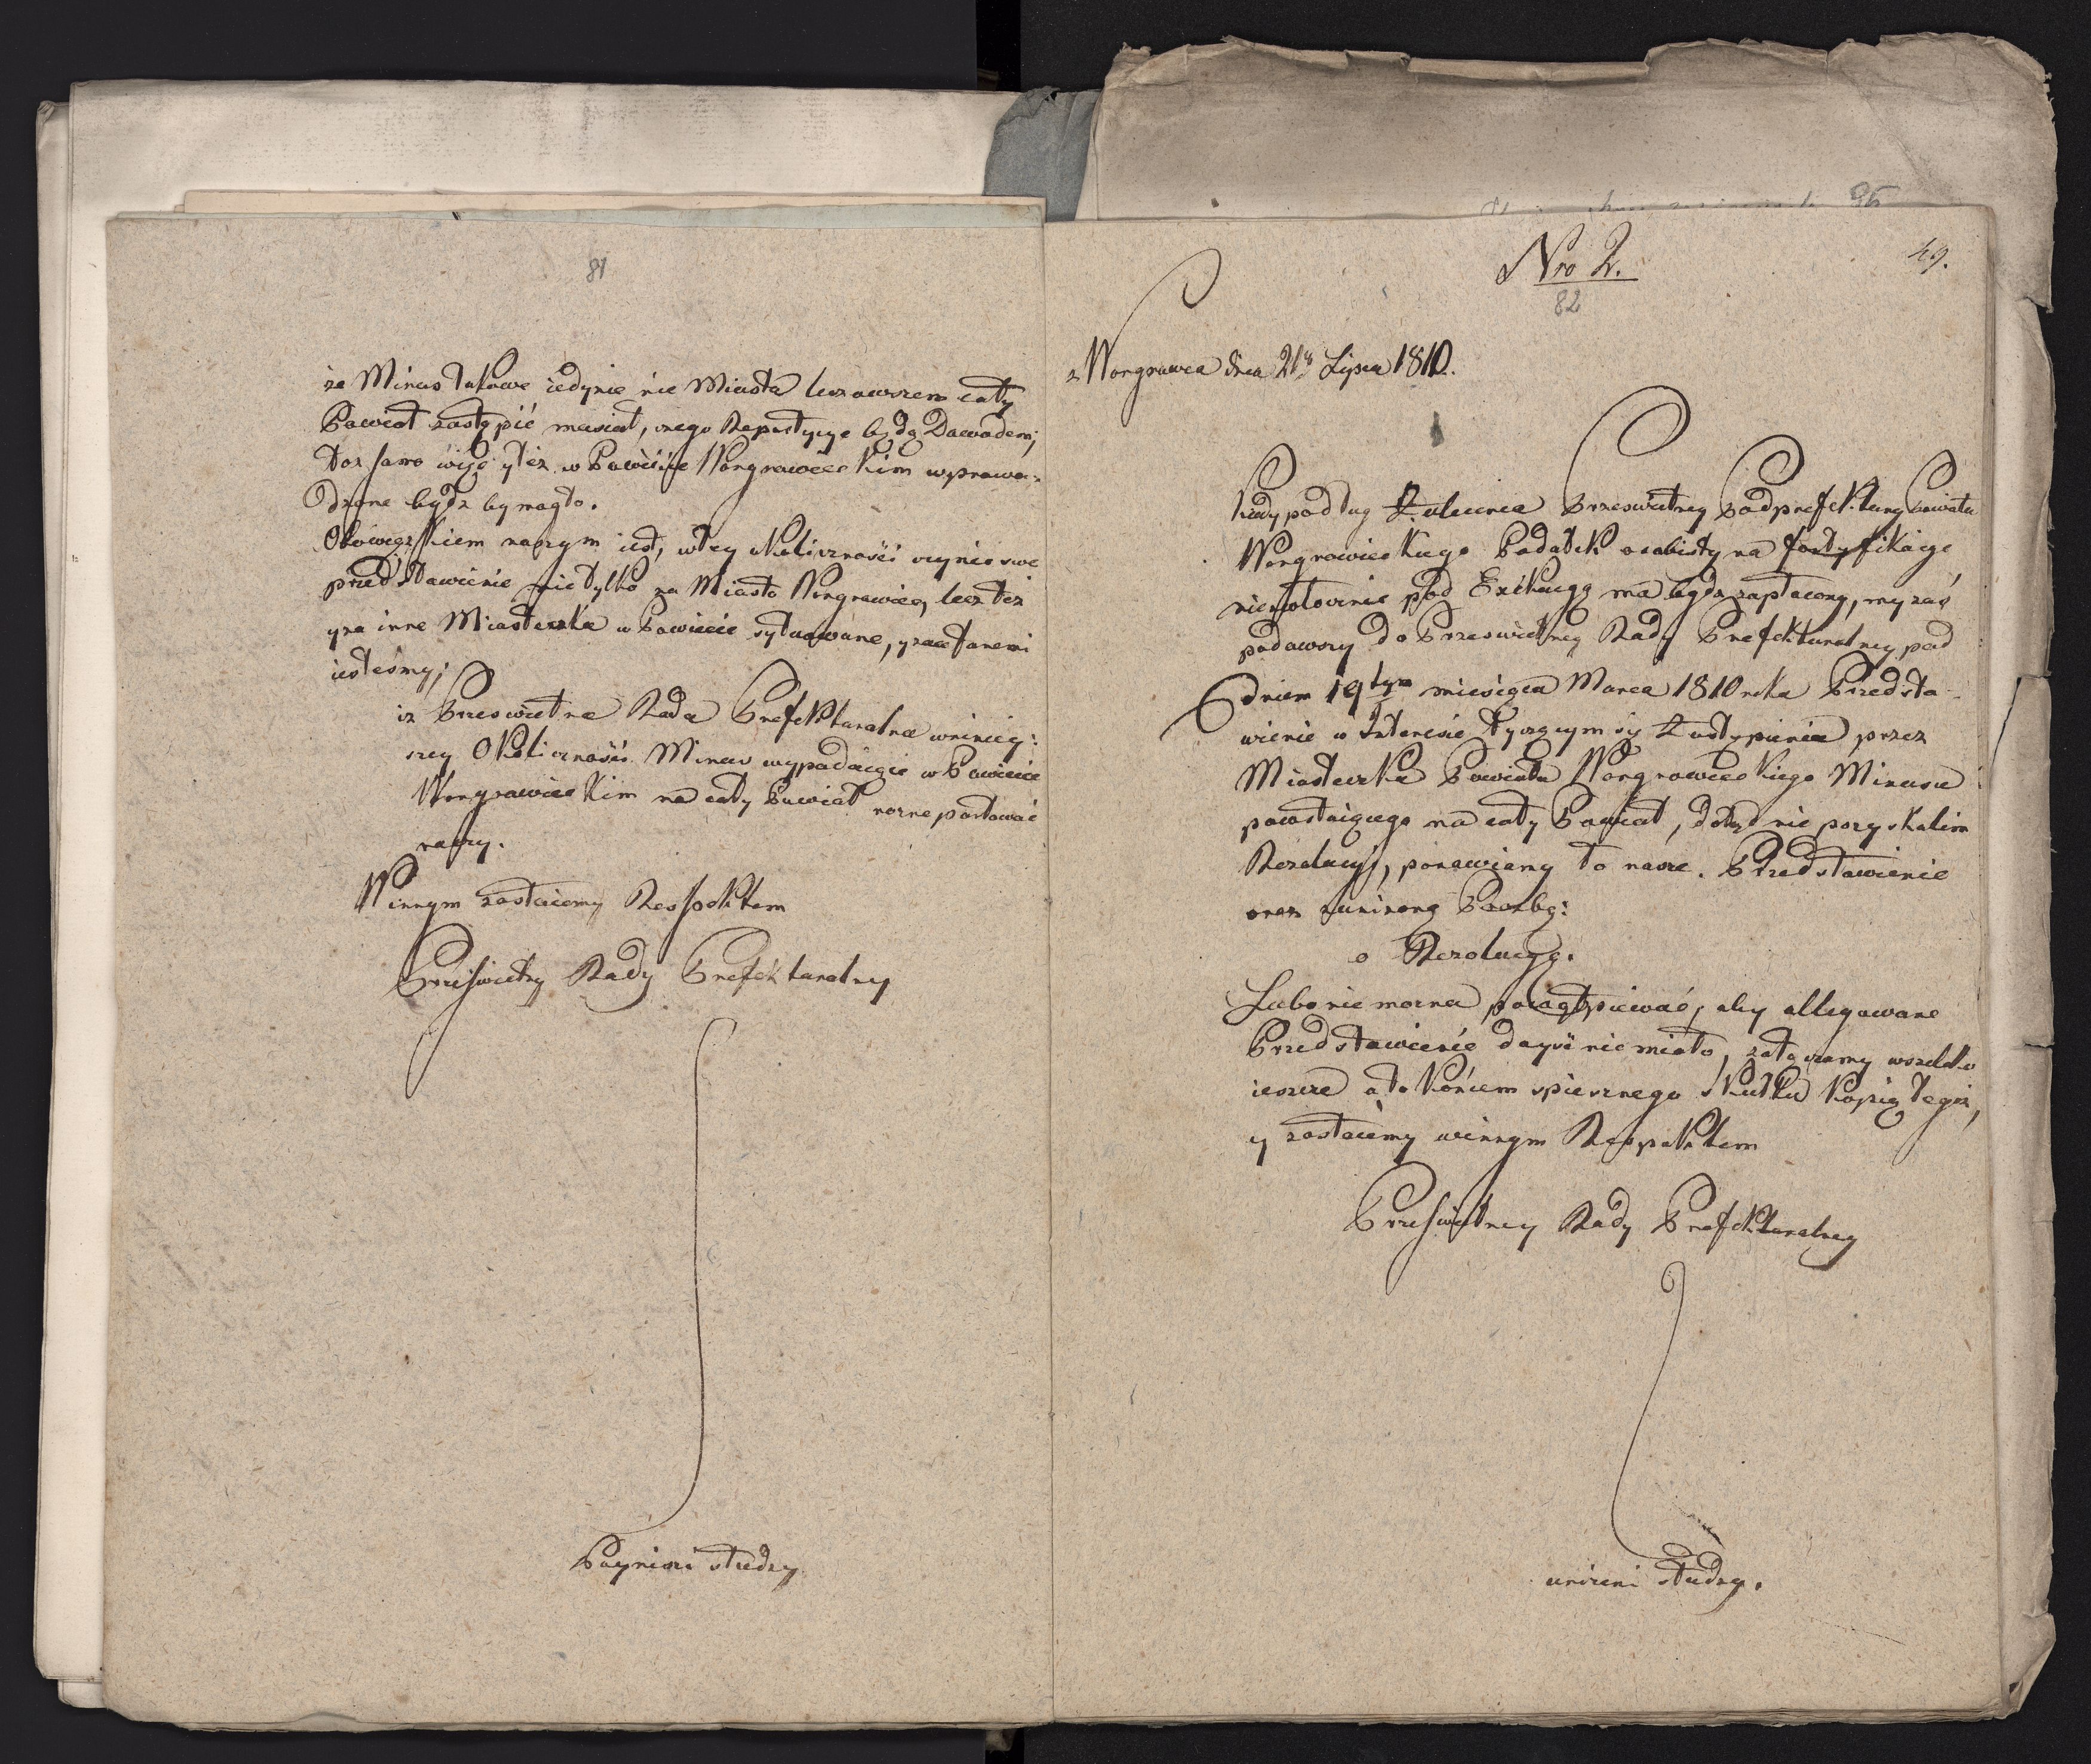 81
że Minus takowe iedynie nie Miasta lecz owszem cały
Powiat zastąpić musiał, czego Repartycye będą Dowodem;
toż samo więc yteż w Powiecie Wongrowieckim wprowa-
dzone bydź by mogło.
Obowiązkiem naszym iest, wtey okoliczności uczynić swe
przedstawienie nie tylko za Miasto Wongrowiec, lecz też
yza inne Miasteczka w Powiecie sytuowane, y
iesteśmy;
iż Prześwietna Rada Prefekturalna wniniey:
szey Okoliczności Minus wypadaiące w Powiecie
Wongrowieckim na cały Powiat rozrepartować
raczy.
Winnym zostaiemy Respektem
Prześwietny Rady Prefekturalny
słudzy
Nro 2.
49.
82
z Wongrowca dnia 21go Lipca 1810.
Kiedy podług Zalecenia Prześwietney Podprefektury Powiatu
Wongrowieckiego Podatek osobisty na fortyfikacye
niezwłocznie pod Exekucyą ma bydź zapłacony, my zaś
podawszy do Prześwietney Rady Prefekturalney pod
dniem 19tym miesiąca Marca 1810 roku Przedsta-
wienie w Interesie tyczącym się Zastąpienia przez
Miasteczka Powiatu Wongrowieckiego Minusu
powstaiącego na cały Powiat, dotąd nie pozyskalim
Rezolucyi, ponawiamy to nasze Przedstawienie
oraz zaniżoną Prozbę:
o Rezolucyą.
Lubo nie można powątpiewać, aby allegowane
Przedstawienie doyść nie miało, załączamy wszelako
ieszcze a to końcem spiesznego skutku kopią tegoż,
y zostaiemy winnym Respektem
Prześwietney Rady Prefekturalney
uniżeni słudzy.